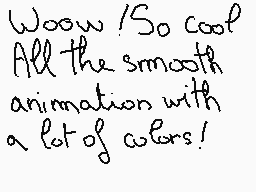 Woow ! So cool
All the smooth
animation with
a lot of colors !